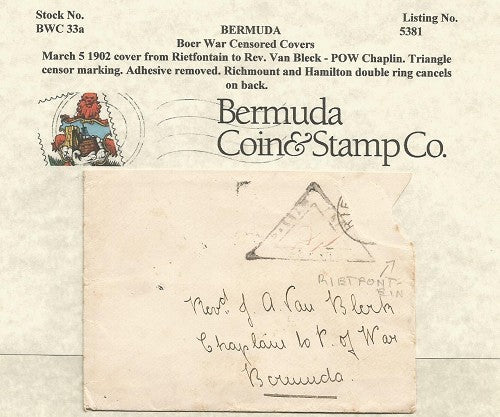 Stock No.
BWC 33a
BERMUDA
Listing No.
5381
Boer War Censored Covers
March 5 1902 cover from Rietfontain to Rev. Van Bleck - POW Chaplin. Triangle
censor marking. Adhesive removed. Richmount and Hamilton double ring cancels
on back.
Bermuda
Coin & Stamp Co.
RIF
RIETFONT-
EIN
Revd J. A. Van Blerk
Chaplain to P. of War
Bermuda.